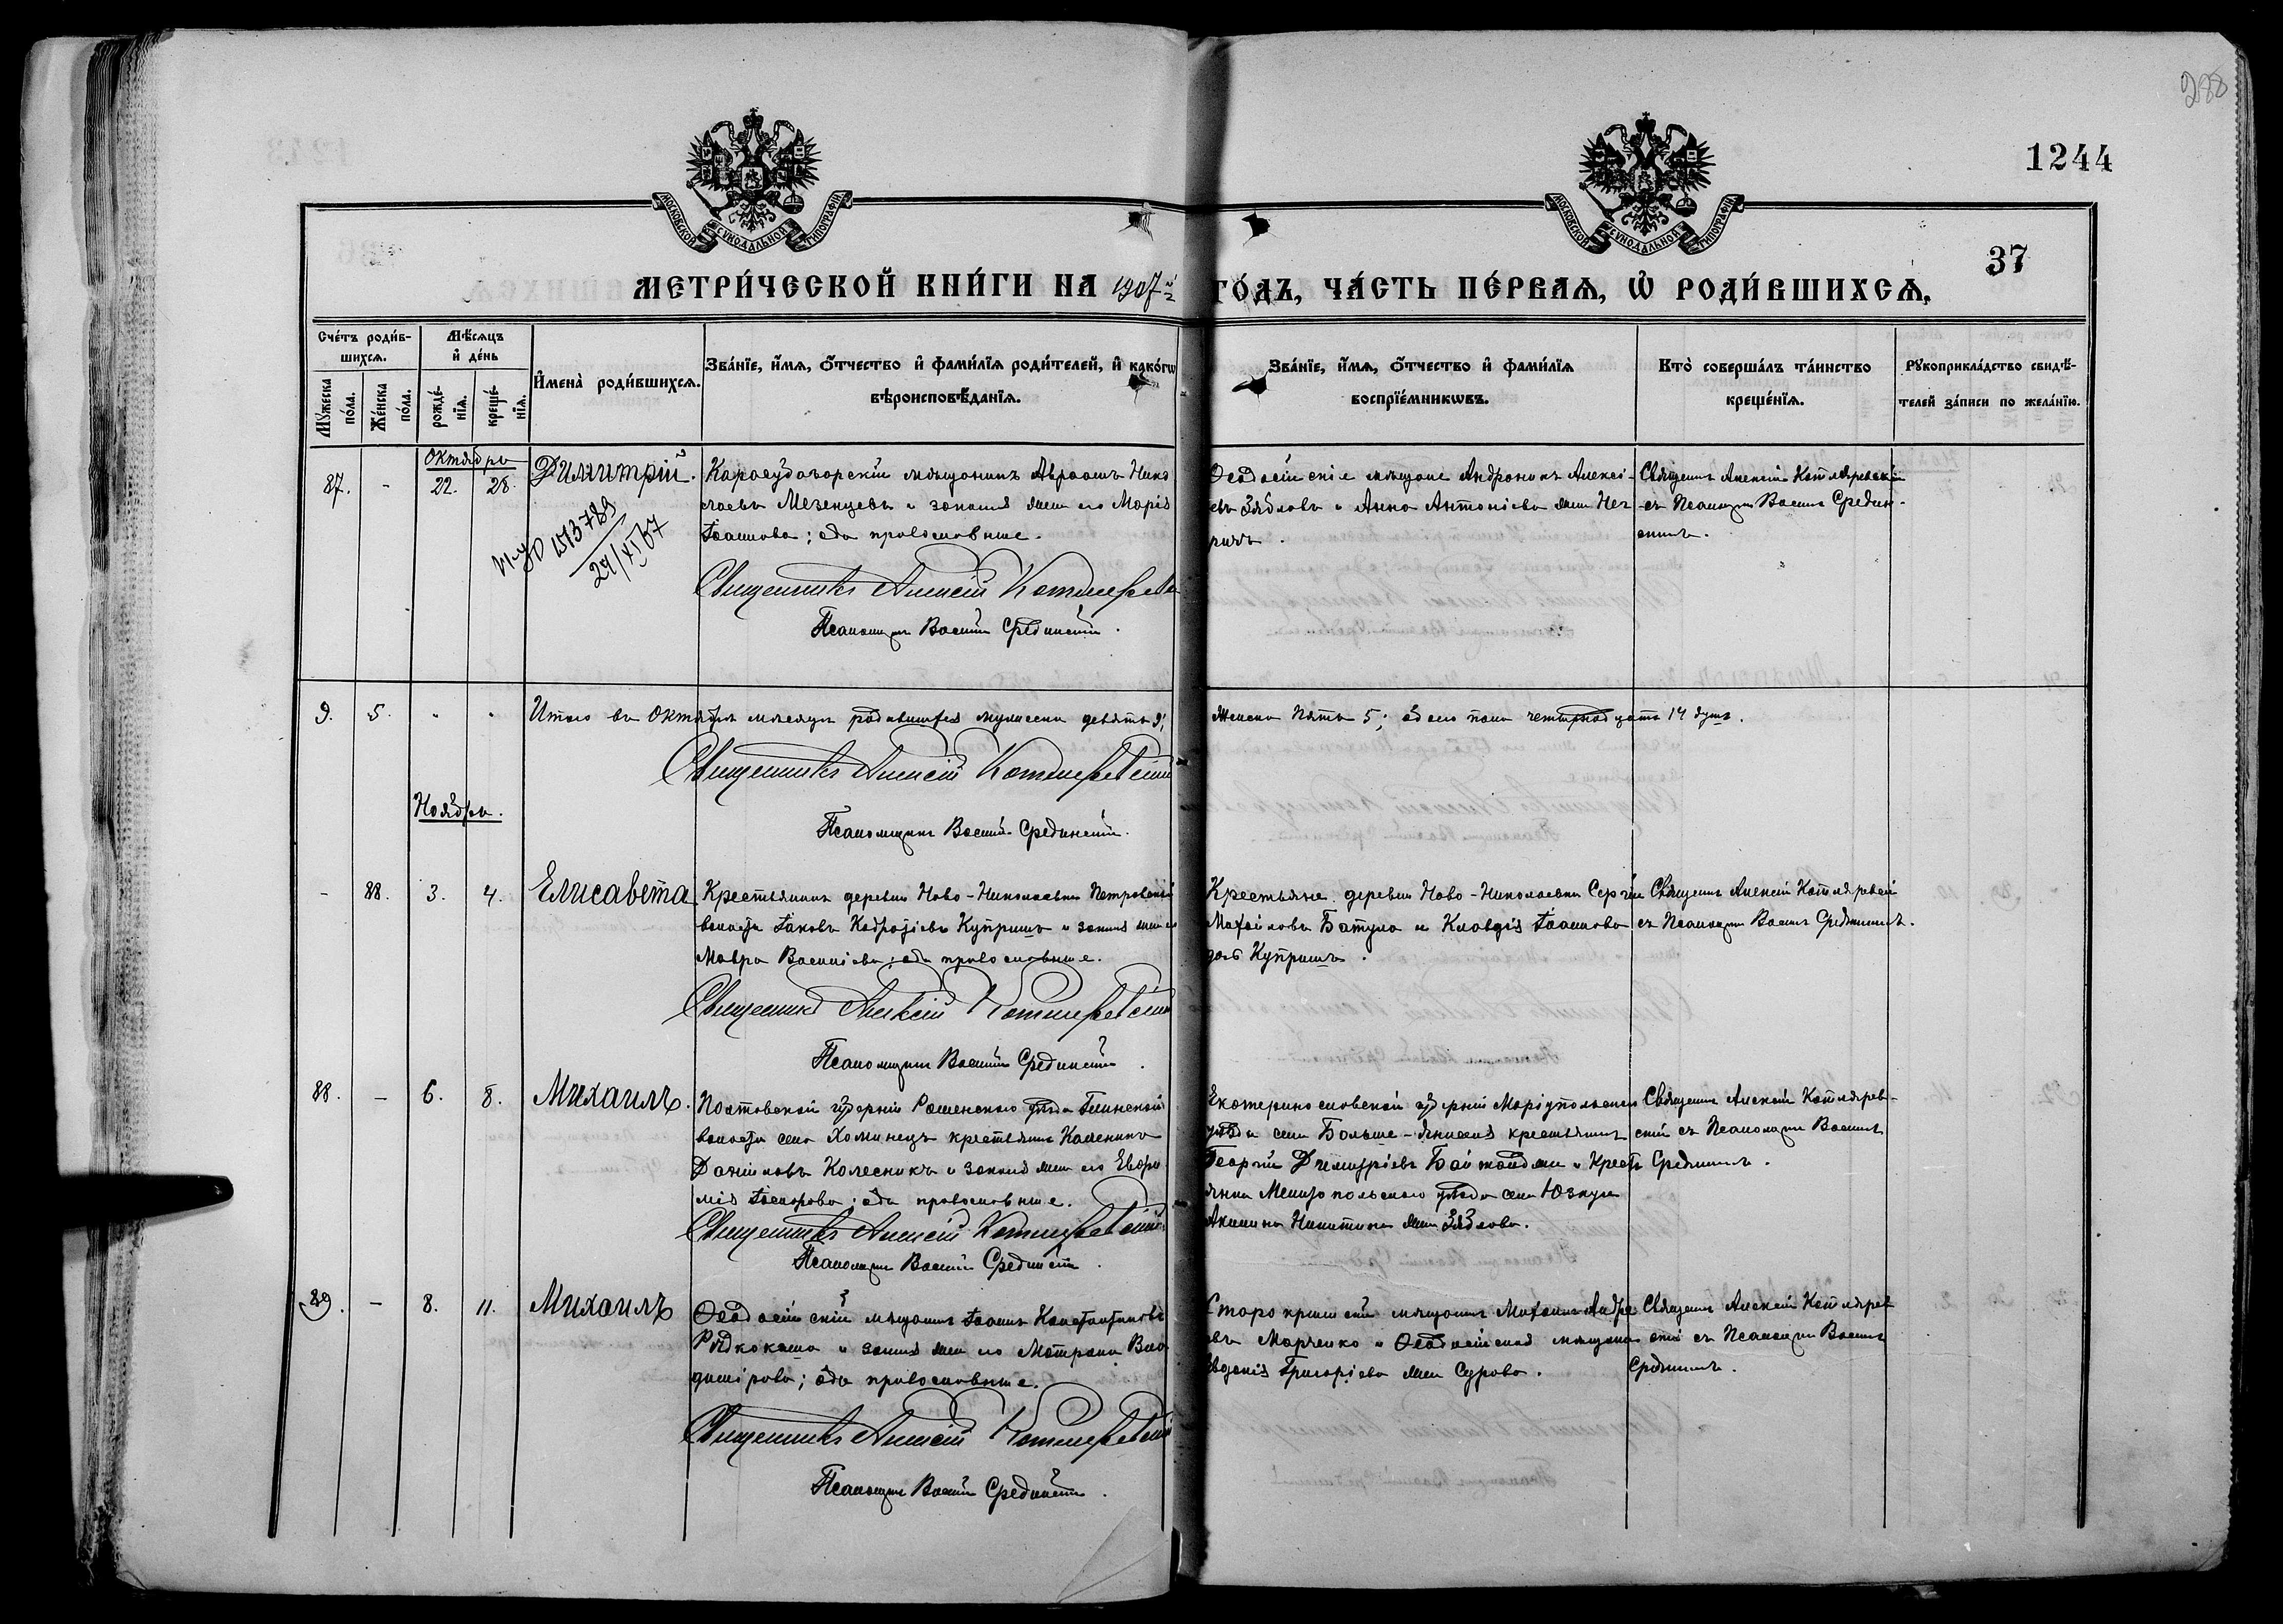 288
1244
37
МОСКОВСКОЙ СΥНОДАЛЬНОЙ ТИПОГРАФІИ
МОСКОВСКОЙ СΥНОДАЛЬНОЙ ТИПОГРАФІИ
МЕТРИ́ЧЕСКОЙ КНИ́ГИ НА 1907-й ГО́ДЪ, ЧА́СТЬ ПЕ́РВАѦ, Ѡ РОДИ́ВШИХСѦ,
Сче́тъ роди́в-
шихсѧ.
Мꙋ́жеска по́ла.
Же́нска по́ла.
Мѣ́сѧцъ
и҆ де́нь
рожде́-
нїѧ.
креще́-
нїѧ.
И҆мена̀ роди́вшихсѧ.
Зва́нїе, и҆́мѧ, ѻ҆́тчество и҆ фами́лїѧ роди́телей, и҆ како́гѡ
вѣроисповѣ́данїѧ.
Зва́нїе, и҆́мѧ, ѻ҆́тчество и҆ фами́лїѧ
воспрїе́мникѡвъ.
Кто̀ соверша́лъ та́инство
креще́нїѧ.
Рꙋкоприкла́дство свидѣ́-
телей за́писи по жела́нїю.
Октябрь
87. - 22. 28. Димитрій.
Карасубазарскій мѣщанинъ Авраамъ Нико
лаевъ Мезенцевъ и законная жена его Марія
Іоаннова; оба православные.
Священникъ Алексій Котляревскій
Псаломщикъ Василій Срединскій.
Ѳеодосійскіе мѣщане Андроникъ Алексі-
евъ Зябловъ и Анна Антоніева
Священникъ Алексій Котляревскій
съ Псаломщикомъ Василіемъ Средин-
скимъ.
9. 5. " " Итого въ Октябрѣ мѣсяцѣ родившихся мужеска девять 9,
женска пять 5; обоего пола четырнадцать 14 душъ.
Священникъ Алексій Котляревскій
Псаломщикъ Василій Срединскій.
Ноябрь.
- 88. 3. 4. Елисавета
Крестьянинъ деревни Ново-Николаевки Петровской
волости Іаковъ Купришъ и законная жена его
Мавра Василіева; оба православные.
Священникъ Алексій Котляревскій
Псаломщикъ Василій Срединскій.
Крестьяне деревни Ново-Николаевки Сергій
Михайловъ Батула и Клавдія Іоаннова
Купришъ.
Священникъ Алексій Котляревскій
съ Псаломщикомъ Василіемъ Срединскимъ.
88. - 6. 8. Михаилъ.
Полтавской губерніи Роменскаго уѣзда Глинской
волости села Хоминецъ крестьянинъ Каленикъ
Даніиловъ Колесникъ и законная жена его Евфи
мія; оба православные.
Священникъ Алексій Котляревскій
Псаломщикъ Василій Срединскій.
Екатеринославской губерніи Маріупольскаго
уѣзда села Больше-Янисоля крестьянинъ
Георгій Димитріевъ и Кресть
янка Мелитопольскаго уѣзда села Юзкуи
Акилина Никитина жена Зяблова.
Священникъ Алексій Котлярев-
скій съ Псаломщикомъ Василіемъ
Срединскимъ.
89. - 8. 11. Михаилъ
Ѳеодосійскій мѣщанинъ Іоаннъ Константиновъ
Рядкокаша и законная жена его Матрона Вла
димірова; оба православные.
Священникъ Алексій Котляревскій
Псаломщикъ Василій Срединскій.
Старокрымскій мѣщанинъ Михаилъ Андре
евъ Марченко и Ѳеодосійская мѣщанка
Евдокія Григоріева жена Сурова.
Священникъ Алексій Котлярев
скій съ Псаломщикомъ Василіемъ
Срединскимъ.